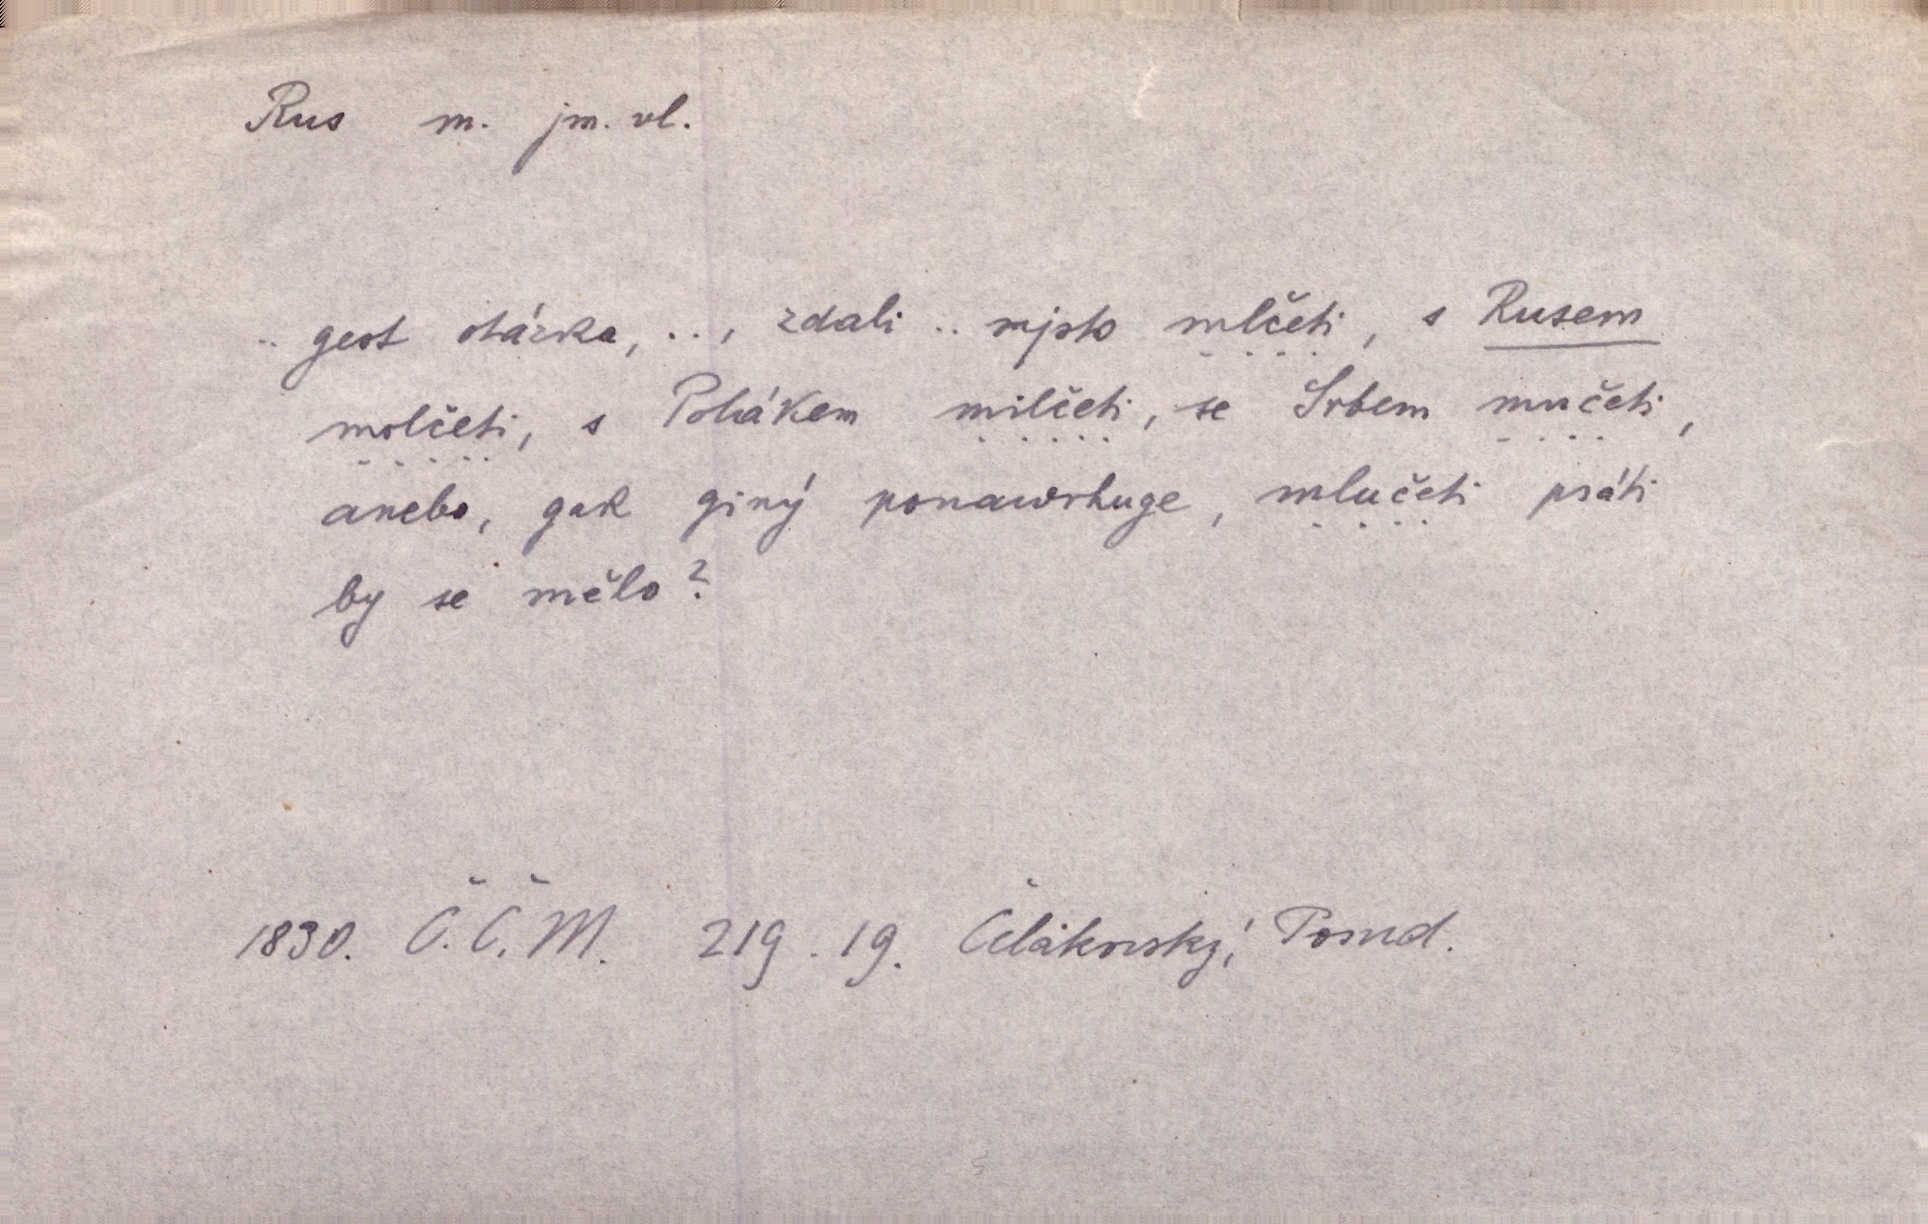 Rus m. jm. vl.
.. gest otázka, .., zdali .. mjsto mlčeti, s Rusem
molčeti, s Polákem milčeti, se Srbem mučeti,
anebo, gak giný ponawrhuge, mlučeti psáti
by se mělo?
1830. Č.Č.M. 219.19. Čelakovský, Posud.